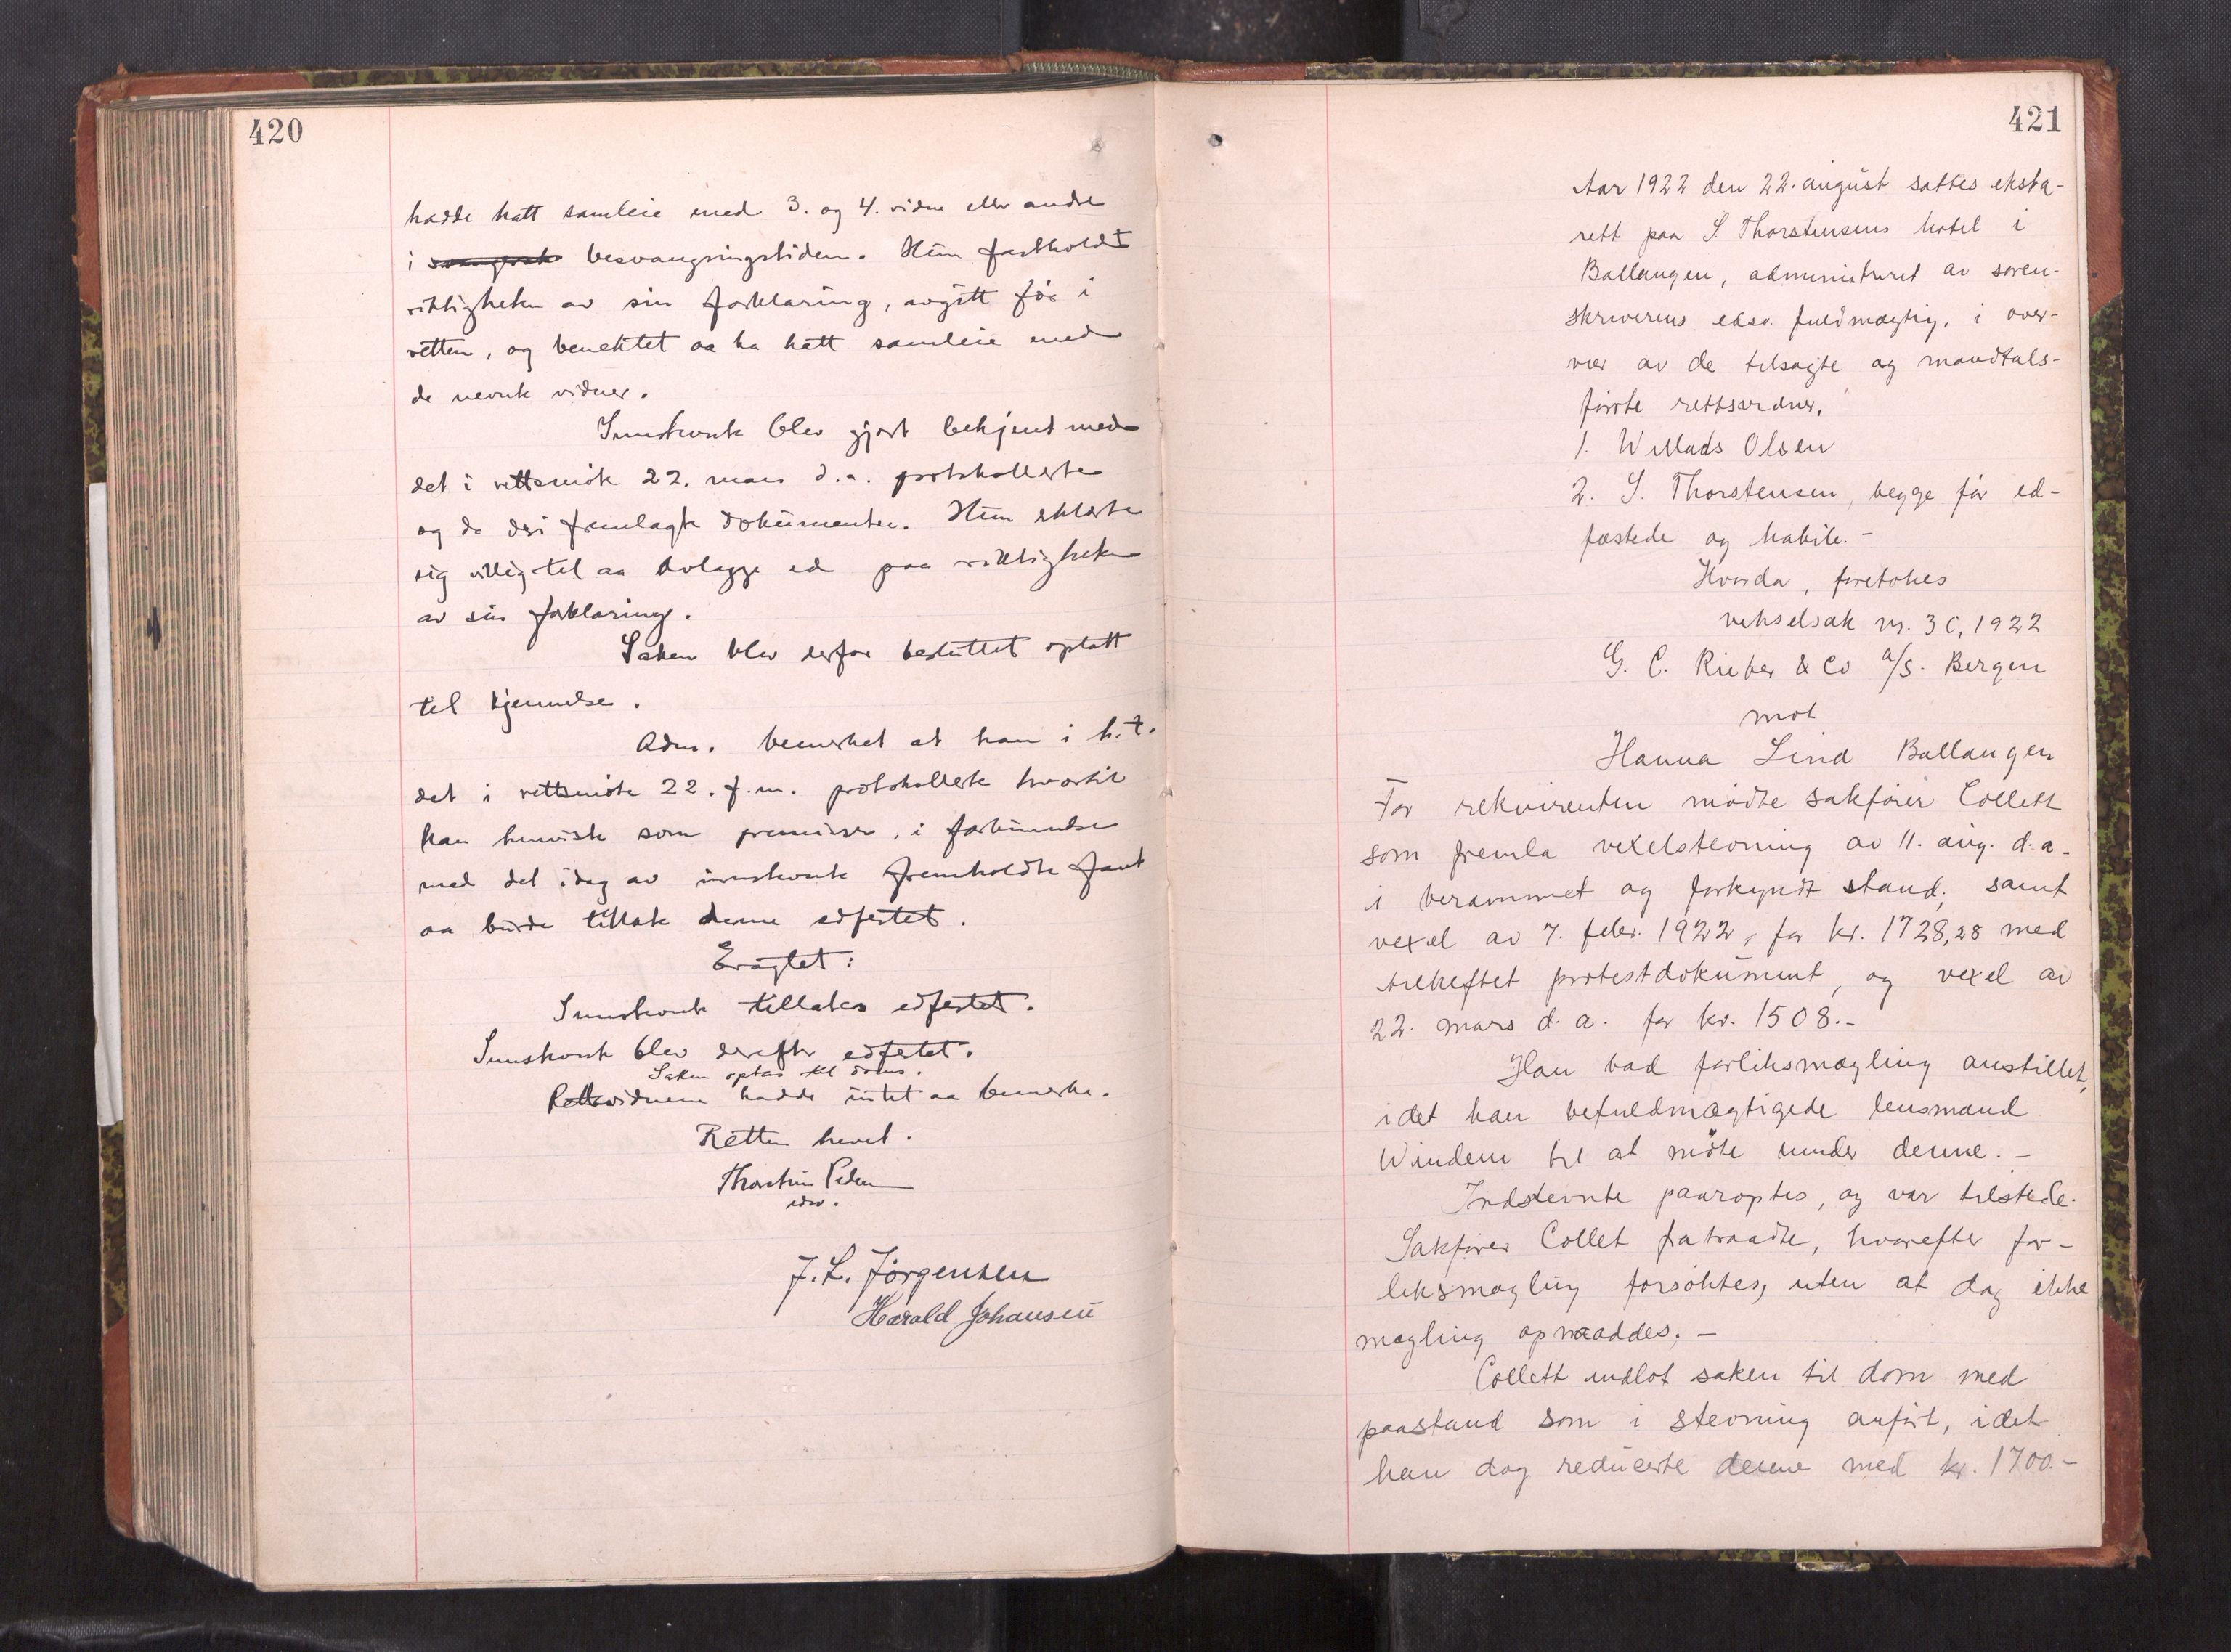 420
hadde hatt samleie med 3. og 4. vidne eller andre
i svangersk besvangringstiden. Hun fastholdt
riktigheten av sin forklaring, avgitt før i
retten, og benektet aa ha hatt samleie med
de nevnte vidner.
Innstevnte blev gjort bekjent med
det i rettsmøte 22. mars d.a. protokollerte
og de deri fremlagte dokumenter. Hun erklærte
sig villig til aa avlægge ed paa riktigheten
av sin forklaring.
Saken blev derfor besluttet optatt
til kjennelse.
Adm. bemerket at han i h.t.
det i rettsmøte 22. f.m. protokollerte hvortil
kan henvises som premisser, i forbindelse
med det idag av innstevnte fremholdte fant
aa burde tillate denne edfestet.
Eragtet:
Innstevnte tillates edfestet.
Innstevnte blev derefter edfestet.
Saken optas til doms.
Rettsvidnene hadde intet aa bemerke.
Retten hevet.
Thorstein Peder
edsv.
J. L. Jörgensen
Harald Johansen
421
Aar 1922 den 22. august sattes ekstra-
rett paa S. Thorstensens hotel i
Ballangen, administreret av soren-
skriverens edsv. fuldmægtig, i over-
vær av de tilsagte og mandtals-
førte rettsvidner,
1. Willads Olsen
2. S. Thorstensen, begge før ed-
fæstede og habile. -
Hvorda, foretokes
vekselsak nr. 3 C, 1922
G. C. Rieber & Co a/s. Bergen
mot
Hanna Lind Ballangen
For rekvirenten mødte sakfører Collett
som fremla vexelstevning av 11. aug. d.a.
i berammet og forkyndt stand, samt
vexel av 7. febr. 1922, for kr. 1728,28 med
tilheftet protestdokument, og vexel av
22. mars d. a. for kr. 1508.-
Han bad forliksmægling anstillet,
idet han befuldmægtigede lensmand
Windem til at møte under denne. -
Indstevnte paaroptes, og var tilstede.
Sakfører Collet fratraadte, hvorefter for-
liksmægling forsøktes, uten at dog ikke
mægling opnaaddes. -
Collett indlot saken til dom med
paastand som i stevning anført, idet
han dog reducerte denne med kr. 1700.-